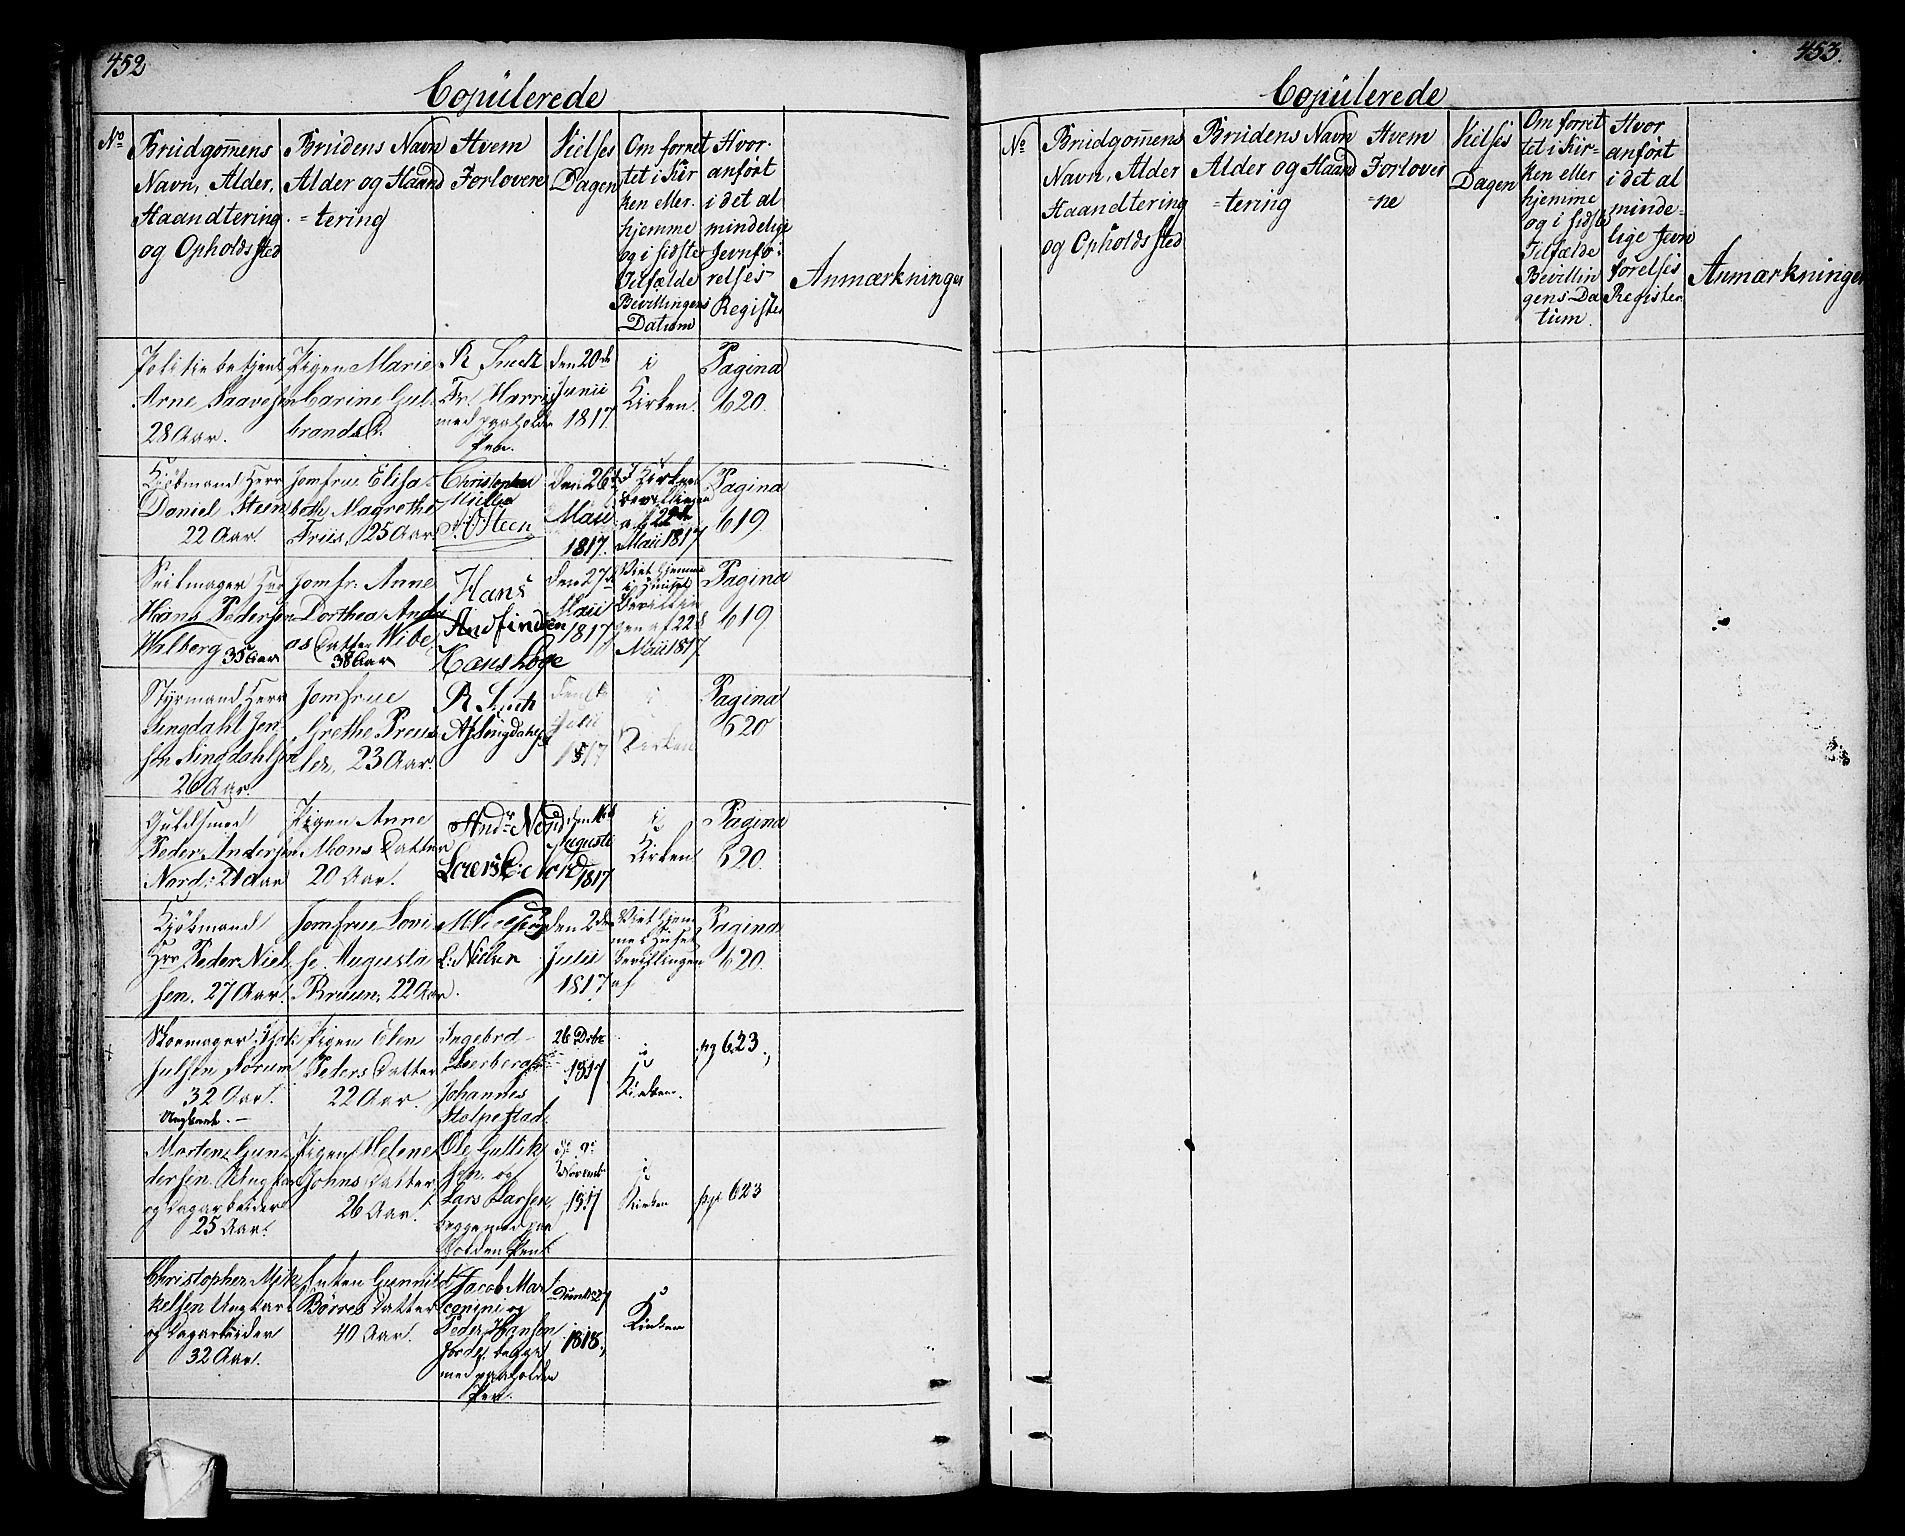 452
Copülerede
No
Brudgommens
Navn, Alder,
Haandtering
og Opholdssted
Brudens Navn
Alder og Haand
=tering
Hvem
Forlovere
Vielses
Dagen
Om forret
tet i Kir
ken eller
hjemme
og i sidste
Tilfælde
Bevillingens
Datum
Hvor
anført
i det al
mindelige
Jevnfø=
relses
Register
Anmærkninger
Politie betjent
Arne Saavesen
28 Aar.
Pigen Marie
Carine Gul
brands D.
R
Fr. Harris
med paaholden
Pen.
den 20de
Junii
1817.
i
Kirken.
Pagina
620.
Kjøbmand Herr
Daniel Steen
22 Aar.
Jomfrue Elisa
beth Magrethe
Friis, 25 Aar
Christopher
Müller
Steen
den 26
Maii
1817.
I Kirken
Bevillingen
af 22de
Maii 1817
Pagina
619.
Seilmager Herr
Hans Pedersen
Walberg 35 Aar
Jomfr: Anne
Dorthea Andre
as Datter Wibe
38 Aar
Hans
Andfindsen
Hans Løge
den 27de
Maii
1817
Viet hjemme
i Huuset
Bevillin
gen af 22d
Maii 1817
Pagina
619
Styrmand Herr
Lingdahl Jen
sen Lingdahlsen
26 Aar.
Jomfrue
Grethe Preus
ler, 23 Aar.
R
Julii
1817
i
Kirken
Pagina
620
Guldsmed
Peder Andersen
Nord: 21 Aar
Pigen Anne
Mons Datter
20 Aar.
Andr Nord
Nord
den
Augusti
1817
i
Kirken
Pagina
620.
Kjøbmand
Hrr Peder Niel
sen, 27 Aar.
Jomfrue Lovi
se Augusta
Bruun, 22 Aar.
L: Nielsen
den 2den
Julii
1817
Viet hjem
me i Huset
Bevillingen
af
Pagina
620.
Skoemager
Julsen Sørum
32 Aar.
Ungkarl. —
Pigen Elen
Peders Datter
22 Aar.
Ingebrd
Johannes
Stolpestad.
26 Debr
1817
i
Kirken.
pg 623.,
Morten Gun
dersen Ungkar
og Dagarbeider
25 Aar.
Pigen Helene
Johns Datter
26 Aar.
Ole Gullik
sen og
Lars Larsen,
begge med paa
holden Pen
9
Novemb
1817
i
Kirken
pg: 623
Christopher Mik
kelsen Ungkarl
og Dagarbeider
32 Aar.
Enken Gunnild
Børres Datter
40 Aar.
Jacob Mar
conini og
Peder Hansen
begge
med paaholden
Pen.
1818.,
i
Kirken
453.
Copülerede
No
Brudgommens
Navn, Alder
Haandtering
og Opholdssted
Brudens Navn
Alder og Haand
=tering
Hvem
Forlover
=ne
Vielses
Dagen
Om forret
tet i Kir=
ken eller
hjemme
og i sidste
Tilfælde
Bevillin
gens Da
tum.
Hvor
anført
i det al
minde=
lige Jevn
førelses
Register
Anmærkninger